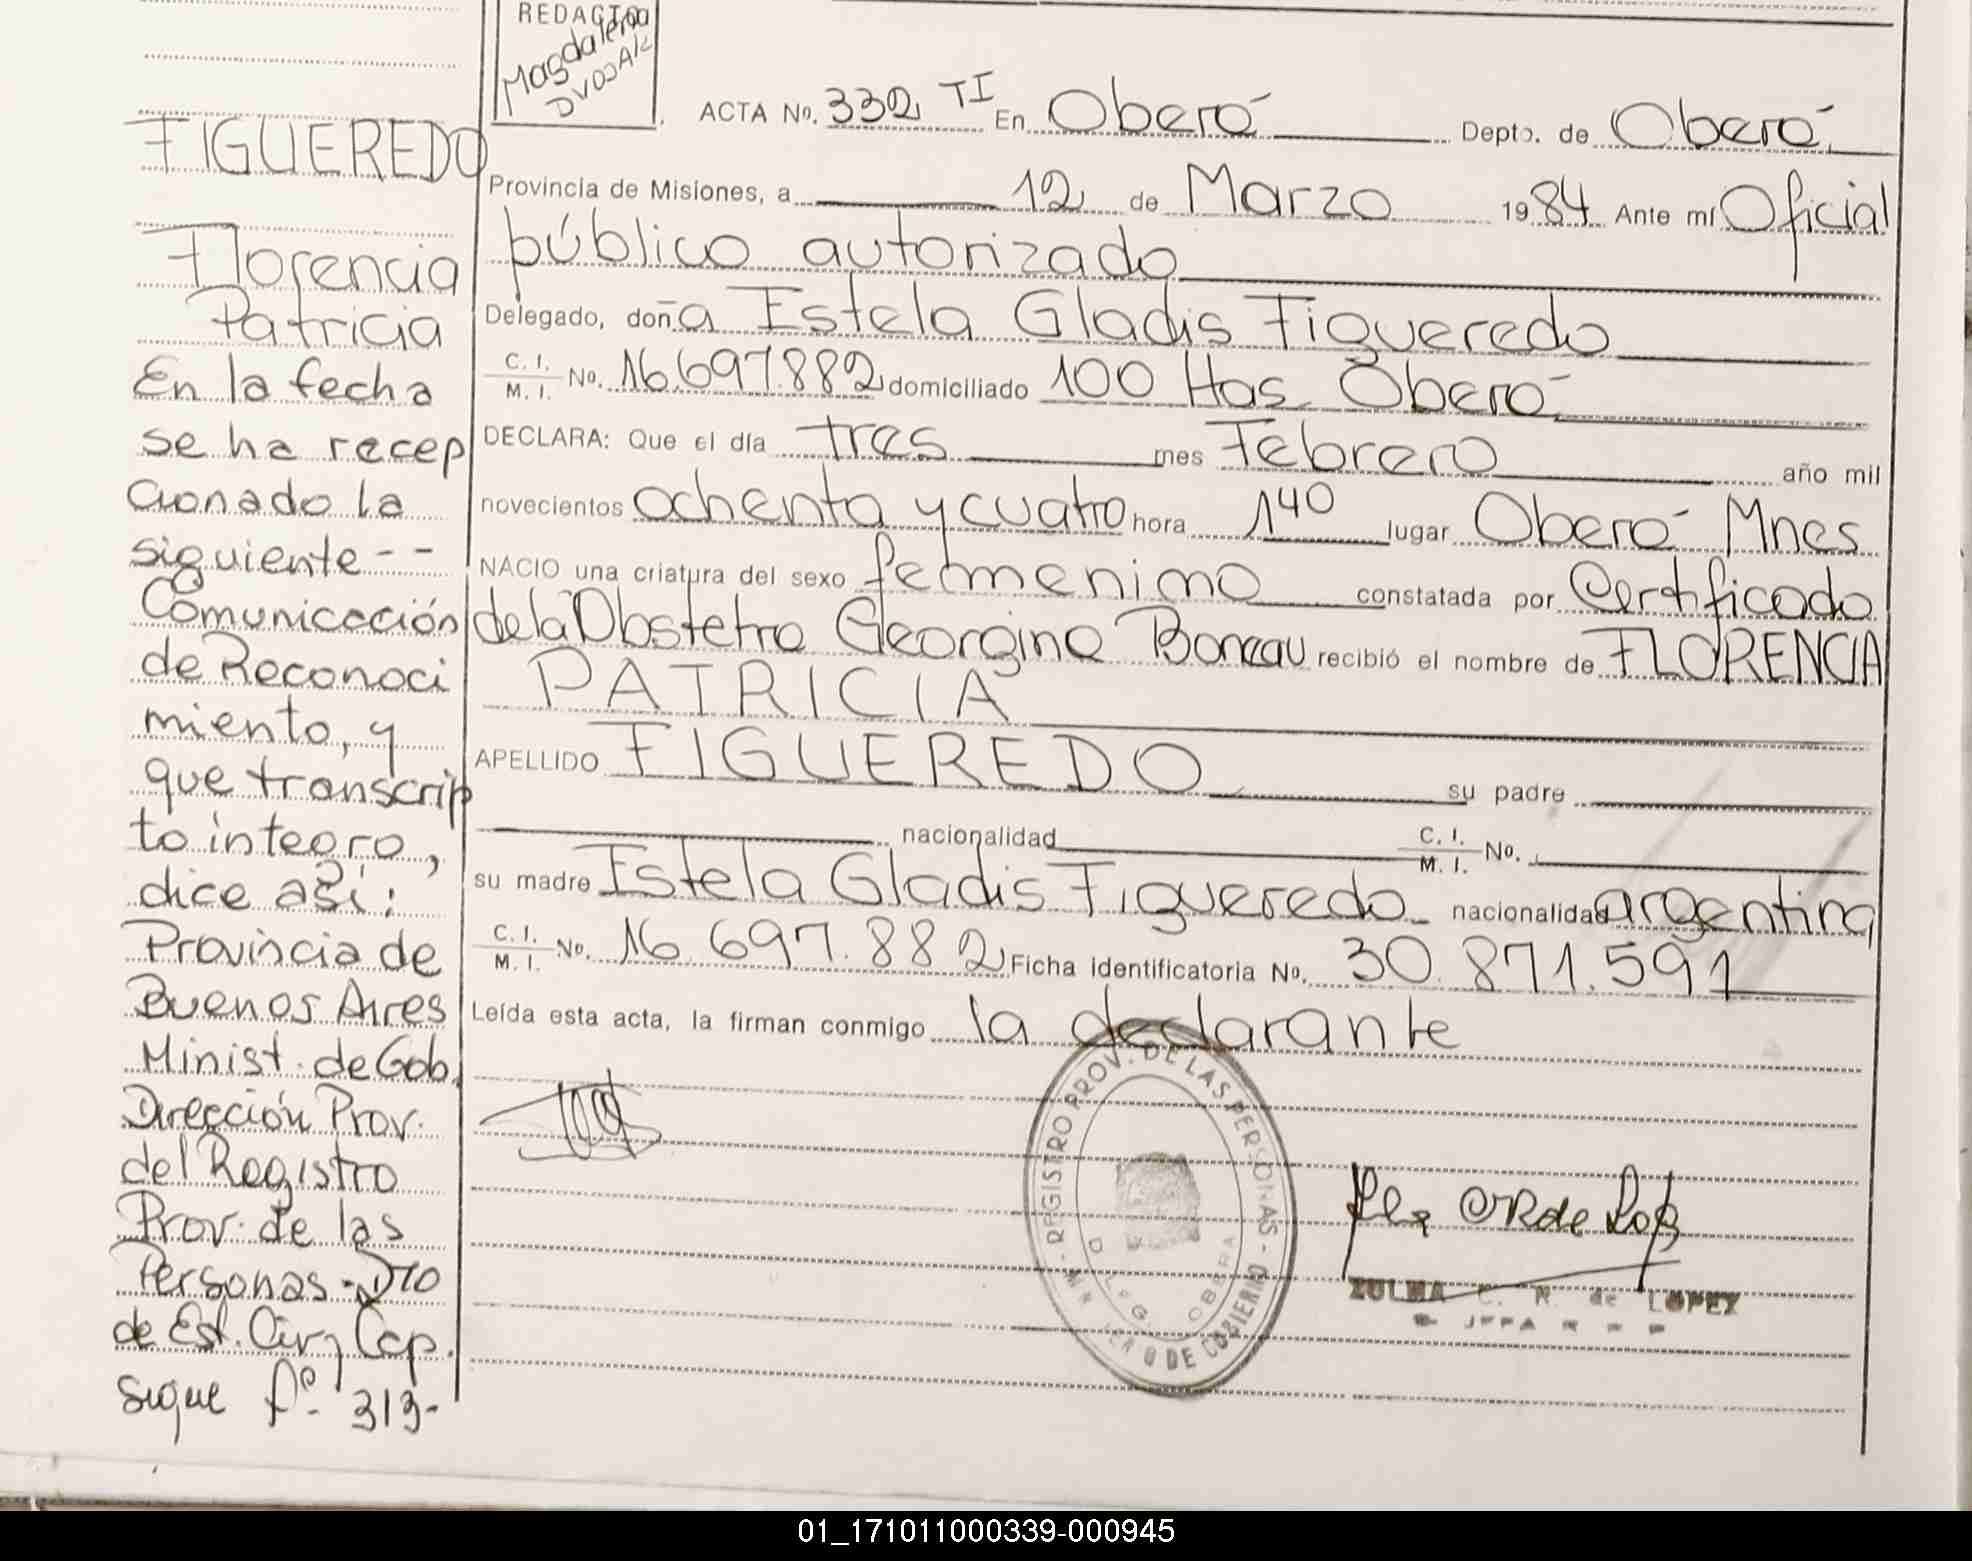 REDACTOR
Magdalena
ACTA No. 332 TI En Oberá Depto. de Oberá
FIGUEREDO
Provincia de Misiones, a 12 de Marzo 1984 Ante mí Oficial
público autorizado
Florencia
Patricia
Delegado, doña Estela Gladis Figueredo
C. I.
M. I. No. 16.697.882 domiciliado 100 Has Oberá
En la fecha
se ha recep
cionado la
siguiente - -
Comunicación
de Reconoci
miento, y
que transcrip
to integro,
dice así:
Provincia de
Buenos Aires
Minist. de Gob.
Dirección Prov.
del Registro
Prov. de las
Personas - Dto
de Est. Civ y Cap.
sigue fº 313-
DECLARA: Que el día tres mes Febrero año mil
novecientos ochenta y cuatro hora 1 40 lugar Oberá Mnes
NACIO una criatura del sexo femenino constatada por Certificado
de la Obstetra Georgina recibió el nombre de FLORENCIA
PATRICIA
APELLIDO FIGUEREDO su padre
nacionalidad C. I.
M. I. No.
su madre Estela Gladis Figueredo nacionalidad argentina
C. I.
M. I. No. 16.697.882 Ficha identificatoria No. 30.871.591
Leída esta acta, la firman conmigo la declarante
REGISTRO PROV. DE LAS PERSONAS
DE GOBIERNO
ZULMA C. R. de LOPEZ
01_171011000339-000945